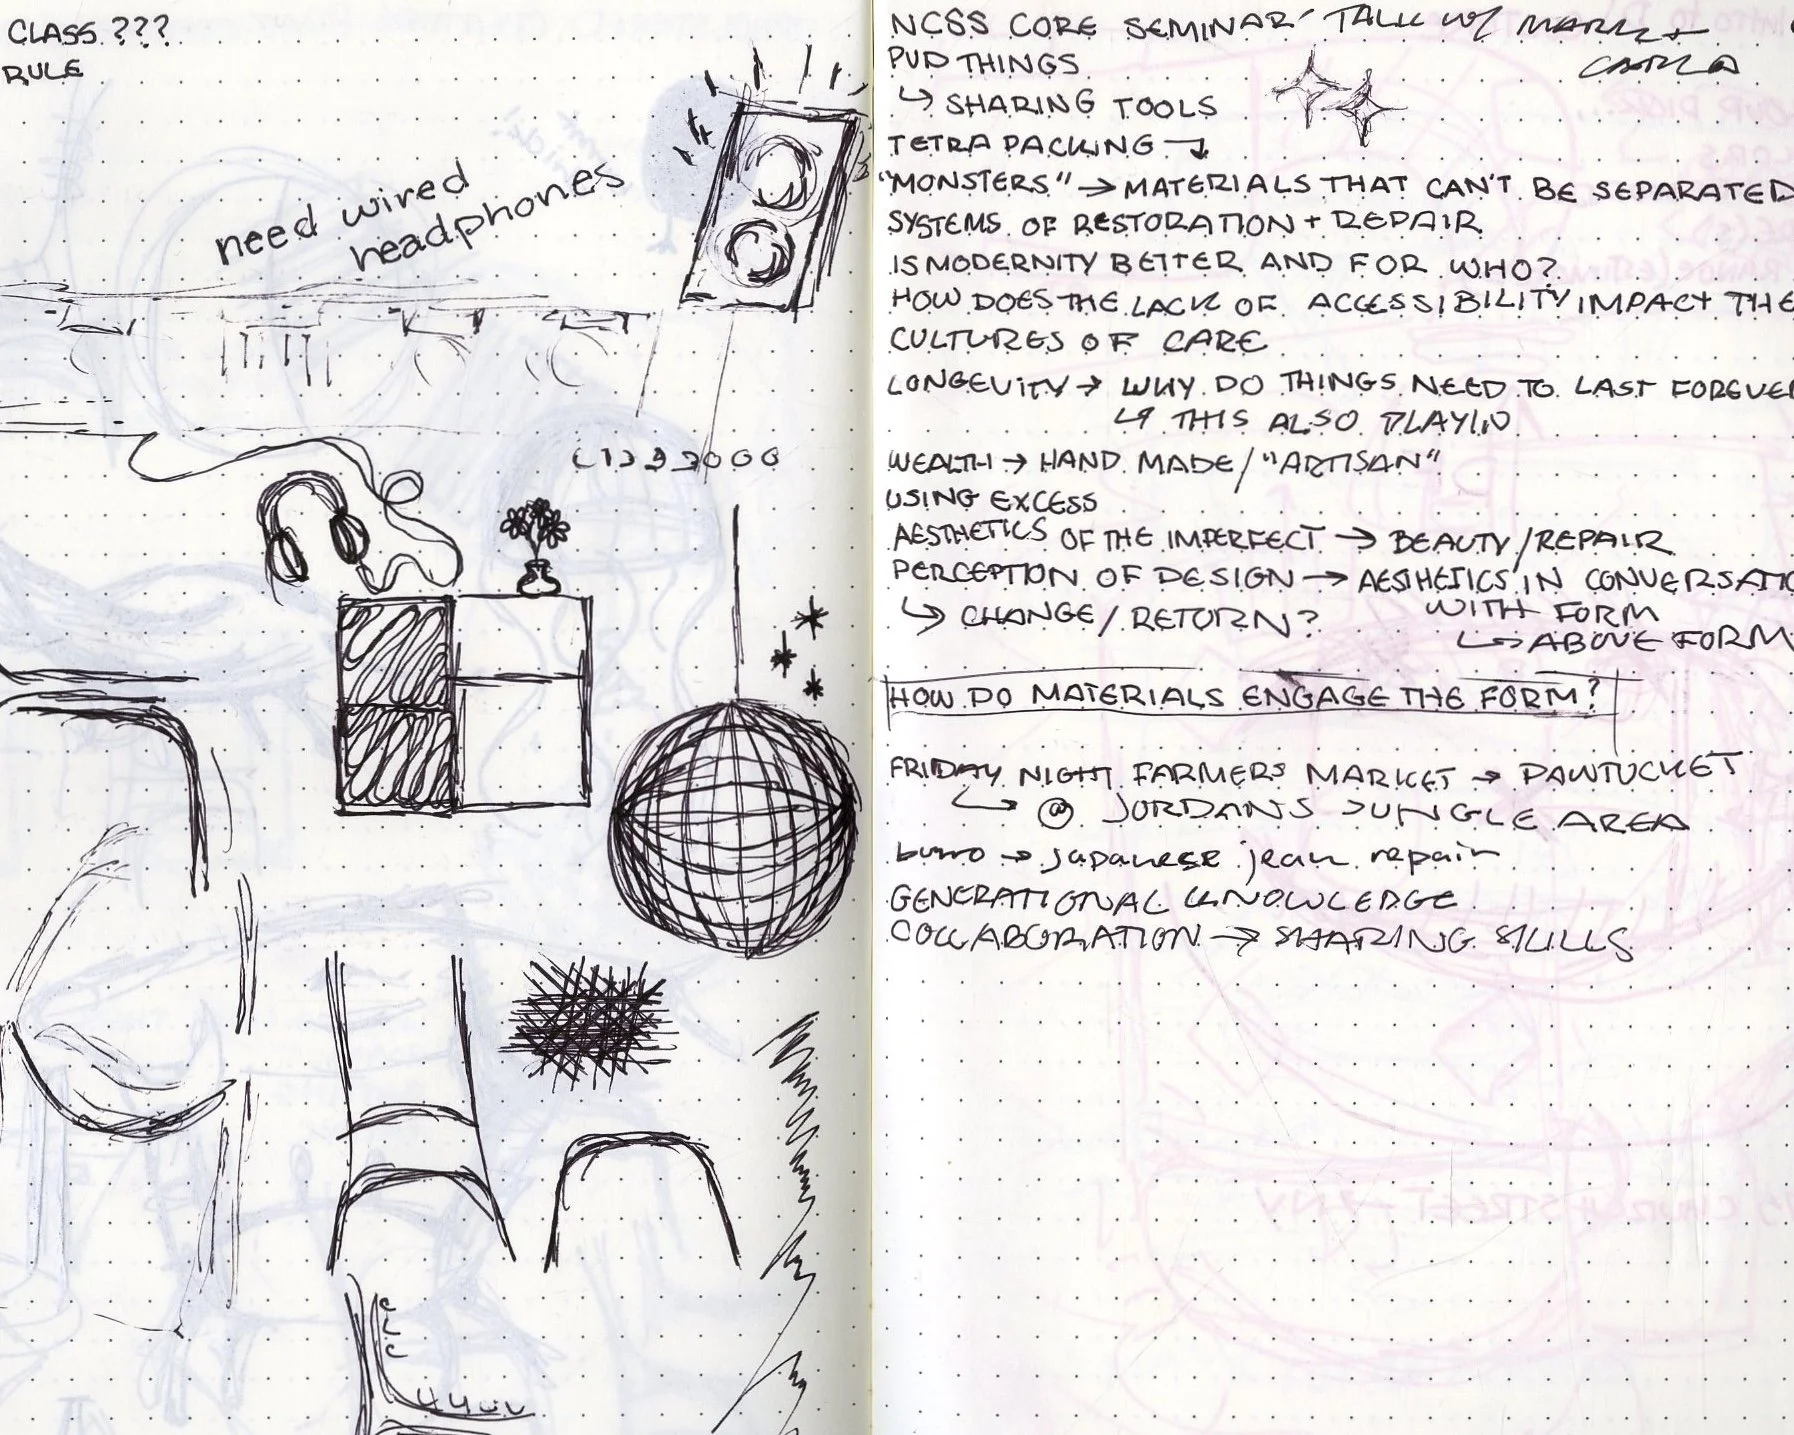 CLASS ???
RULE
need wired
headphones
NCSS CORE SEMINAR TALK W/ MARK +
CARLA
PUD THINGS
↳ SHARING TOOLS
TETRA PACKING
"MONSTERS" → MATERIALS THAT CAN'T BE SEPARATED
SYSTEMS OF RESTORATION + REPAIR
IS MODERNITY BETTER AND FOR WHO?
HOW DOES THE LACK OF ACCESSIBILITY IMPACT THE
CULTURES OF CARE
LONGEVITY → WHY DO THINGS NEED TO LAST FOREVER
↳ THIS ALSO PLAY/IN
WEALTH → HAND MADE / "ARTISAN"
USING EXCESS
AESTHETICS OF THE IMPERFECT → BEAUTY / REPAIR
PERCEPTION OF DESIGN → AESTHETICS IN CONVERSATIO
↳ CHANGE / RETURN? WITH FORM
↳ ABOVE FORM
HOW DO MATERIALS ENGAGE THE FORM?
FRIDAY NIGHT FARMERS MARKET → PAWTUCKET
↳ @ JORDANS JUNGLE AREA
→ japanese jean repair
GENERATIONAL KNOWLEDGE
COLLABORATION → SHARING SKILLS